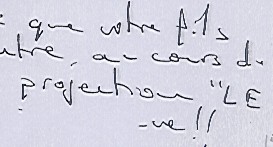 que votre fils
au cours d
projection "LE
-ve!!